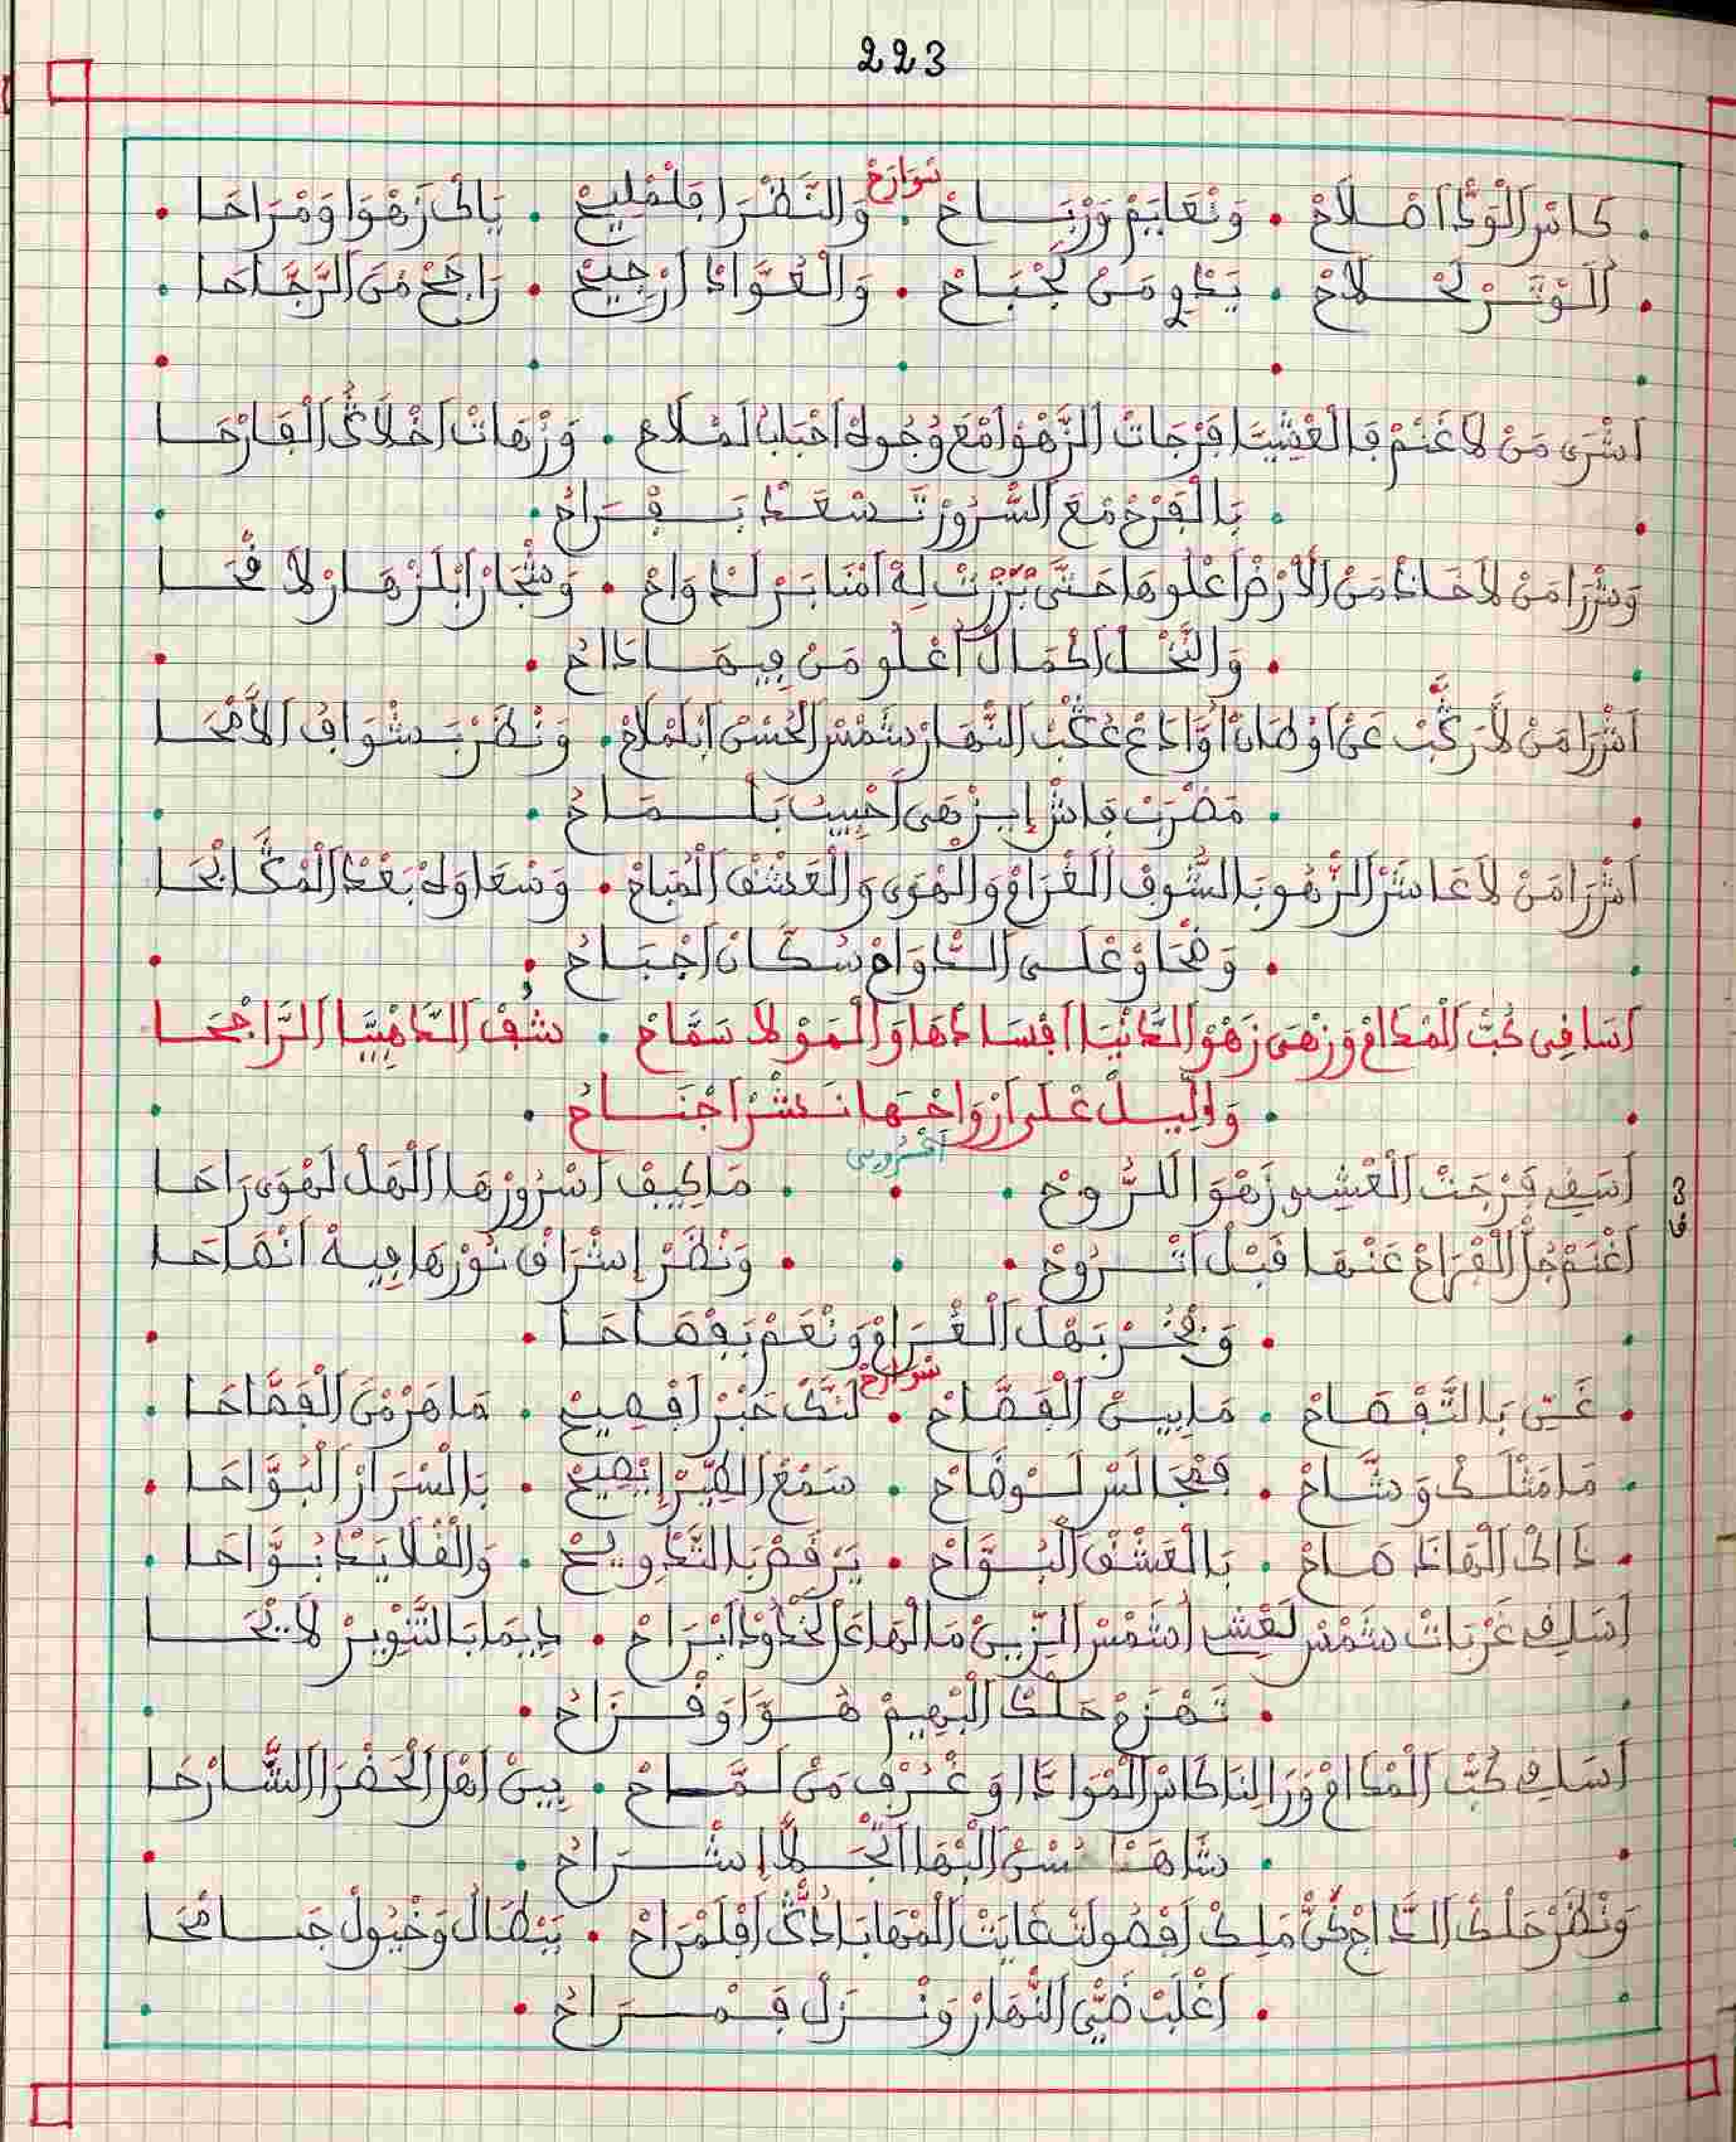 223
سوارح
كاس الودّ اصلاح . ونعايم ورباح . والنظرا فلمليح . ياك زهوا ومراحا
الوتر لحلاح . يدوي من لجباح . والعوّاد ارجيح . راجح من الرجّاحا
اشرى من لا غنم فالعشيا فرجات الزهوا مع وجوه احبابا لملاح . وزهات اخلاڭ الفارحا
. بالفرح مع السرور تسعد بفراح .
وشرا من لا خاد من الارض اعلوها حتى برزت له امنابر لدواح . وشجار ابلزهار لافحا
. والنخل اكمال اعلو من فيها داح .
اشرا من لا ركّب عن اوطان اوداع عڭب النهار شمس الحسن ابلملاح . ونظر بشواف الامحا
. مضرب فاش ايزهى احبيب بلماح .
اشرا من لا عاشر الزهو بالشوق الغرام والهوى والعشق المباح . وسعاوه بعد المكابحا
. وضحاو على الدوام سكان اجباح .
اسافي كبّ المدام وزهى زهو الدنيا افساعها والمولا سمّاح . شف الداهبيا الراجحا
. والليل على ارواحها نشر اجناح .
اكرسي
اسفي فرجت العشي زهوا للروح . ماكيف اسرورها الهل لهوى راحا
اغنم جلّ الفراح عنها قبل اتروح . ونظر اشراق نورها فيه انصاحا
. وفخر بهل الغرام ونعم بفصاحا .
سوارح
غنّي بالتفصاح . مابين الفصّاح . لنّك خبر افصيح . ماهر من الفصّاحا
مامثلك وشّاح . فمجالس لوضاح . سمع الطير ايصيح . بالسرار البوّاحا
داك الهاد صاح . بالعشق البوّاح . يرقص بالتدويح . والفلايد بوّاحا
اسافي غربات شمس لعشي اشمس الزين مالها عن لخدود ابراح . ديما بالتنوير لايحا
. تهزم حلك البهيم هوّا وقزاح .
اسافي كبّ المدام ورا لنا كاس المواد او غرف من لمّاح . بين اهل الحضرا الشارحا
. شاهد حسن البها انجلا اشراح .
ونظر حلك الداج كنّ ملك افصولت غايت المهابا دڭّ افلمراح . ببطال وخيول جامحا
. اغلب ضيّ النهار ونزل فمراح .